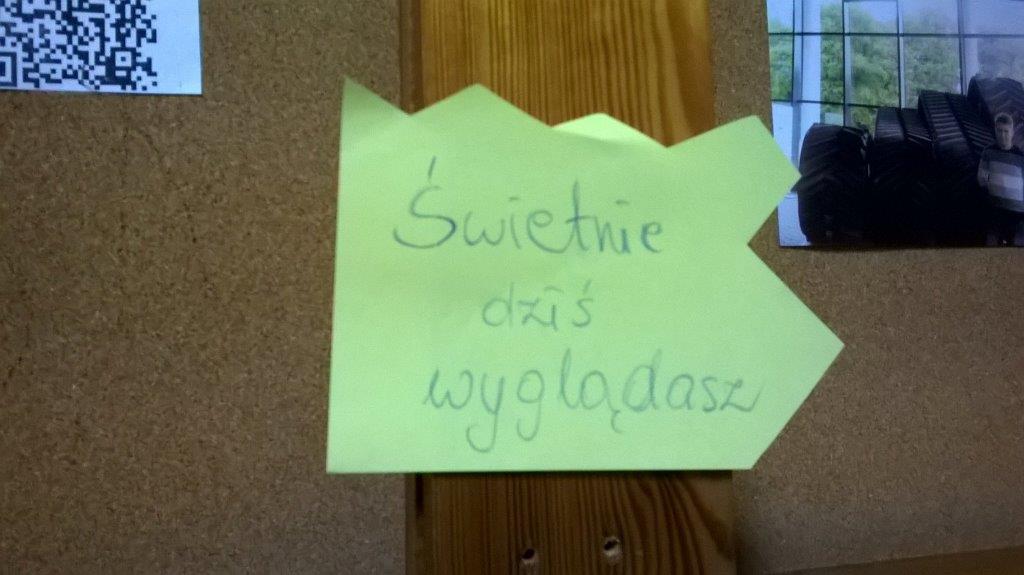 Świetnie
dziś
wyglądasz